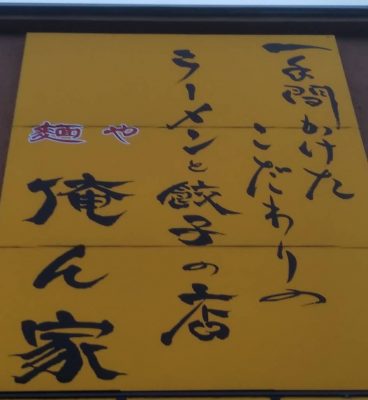 一手間かけた
こだわりの
ラーメンと餃子の店
麺や
俺ん家